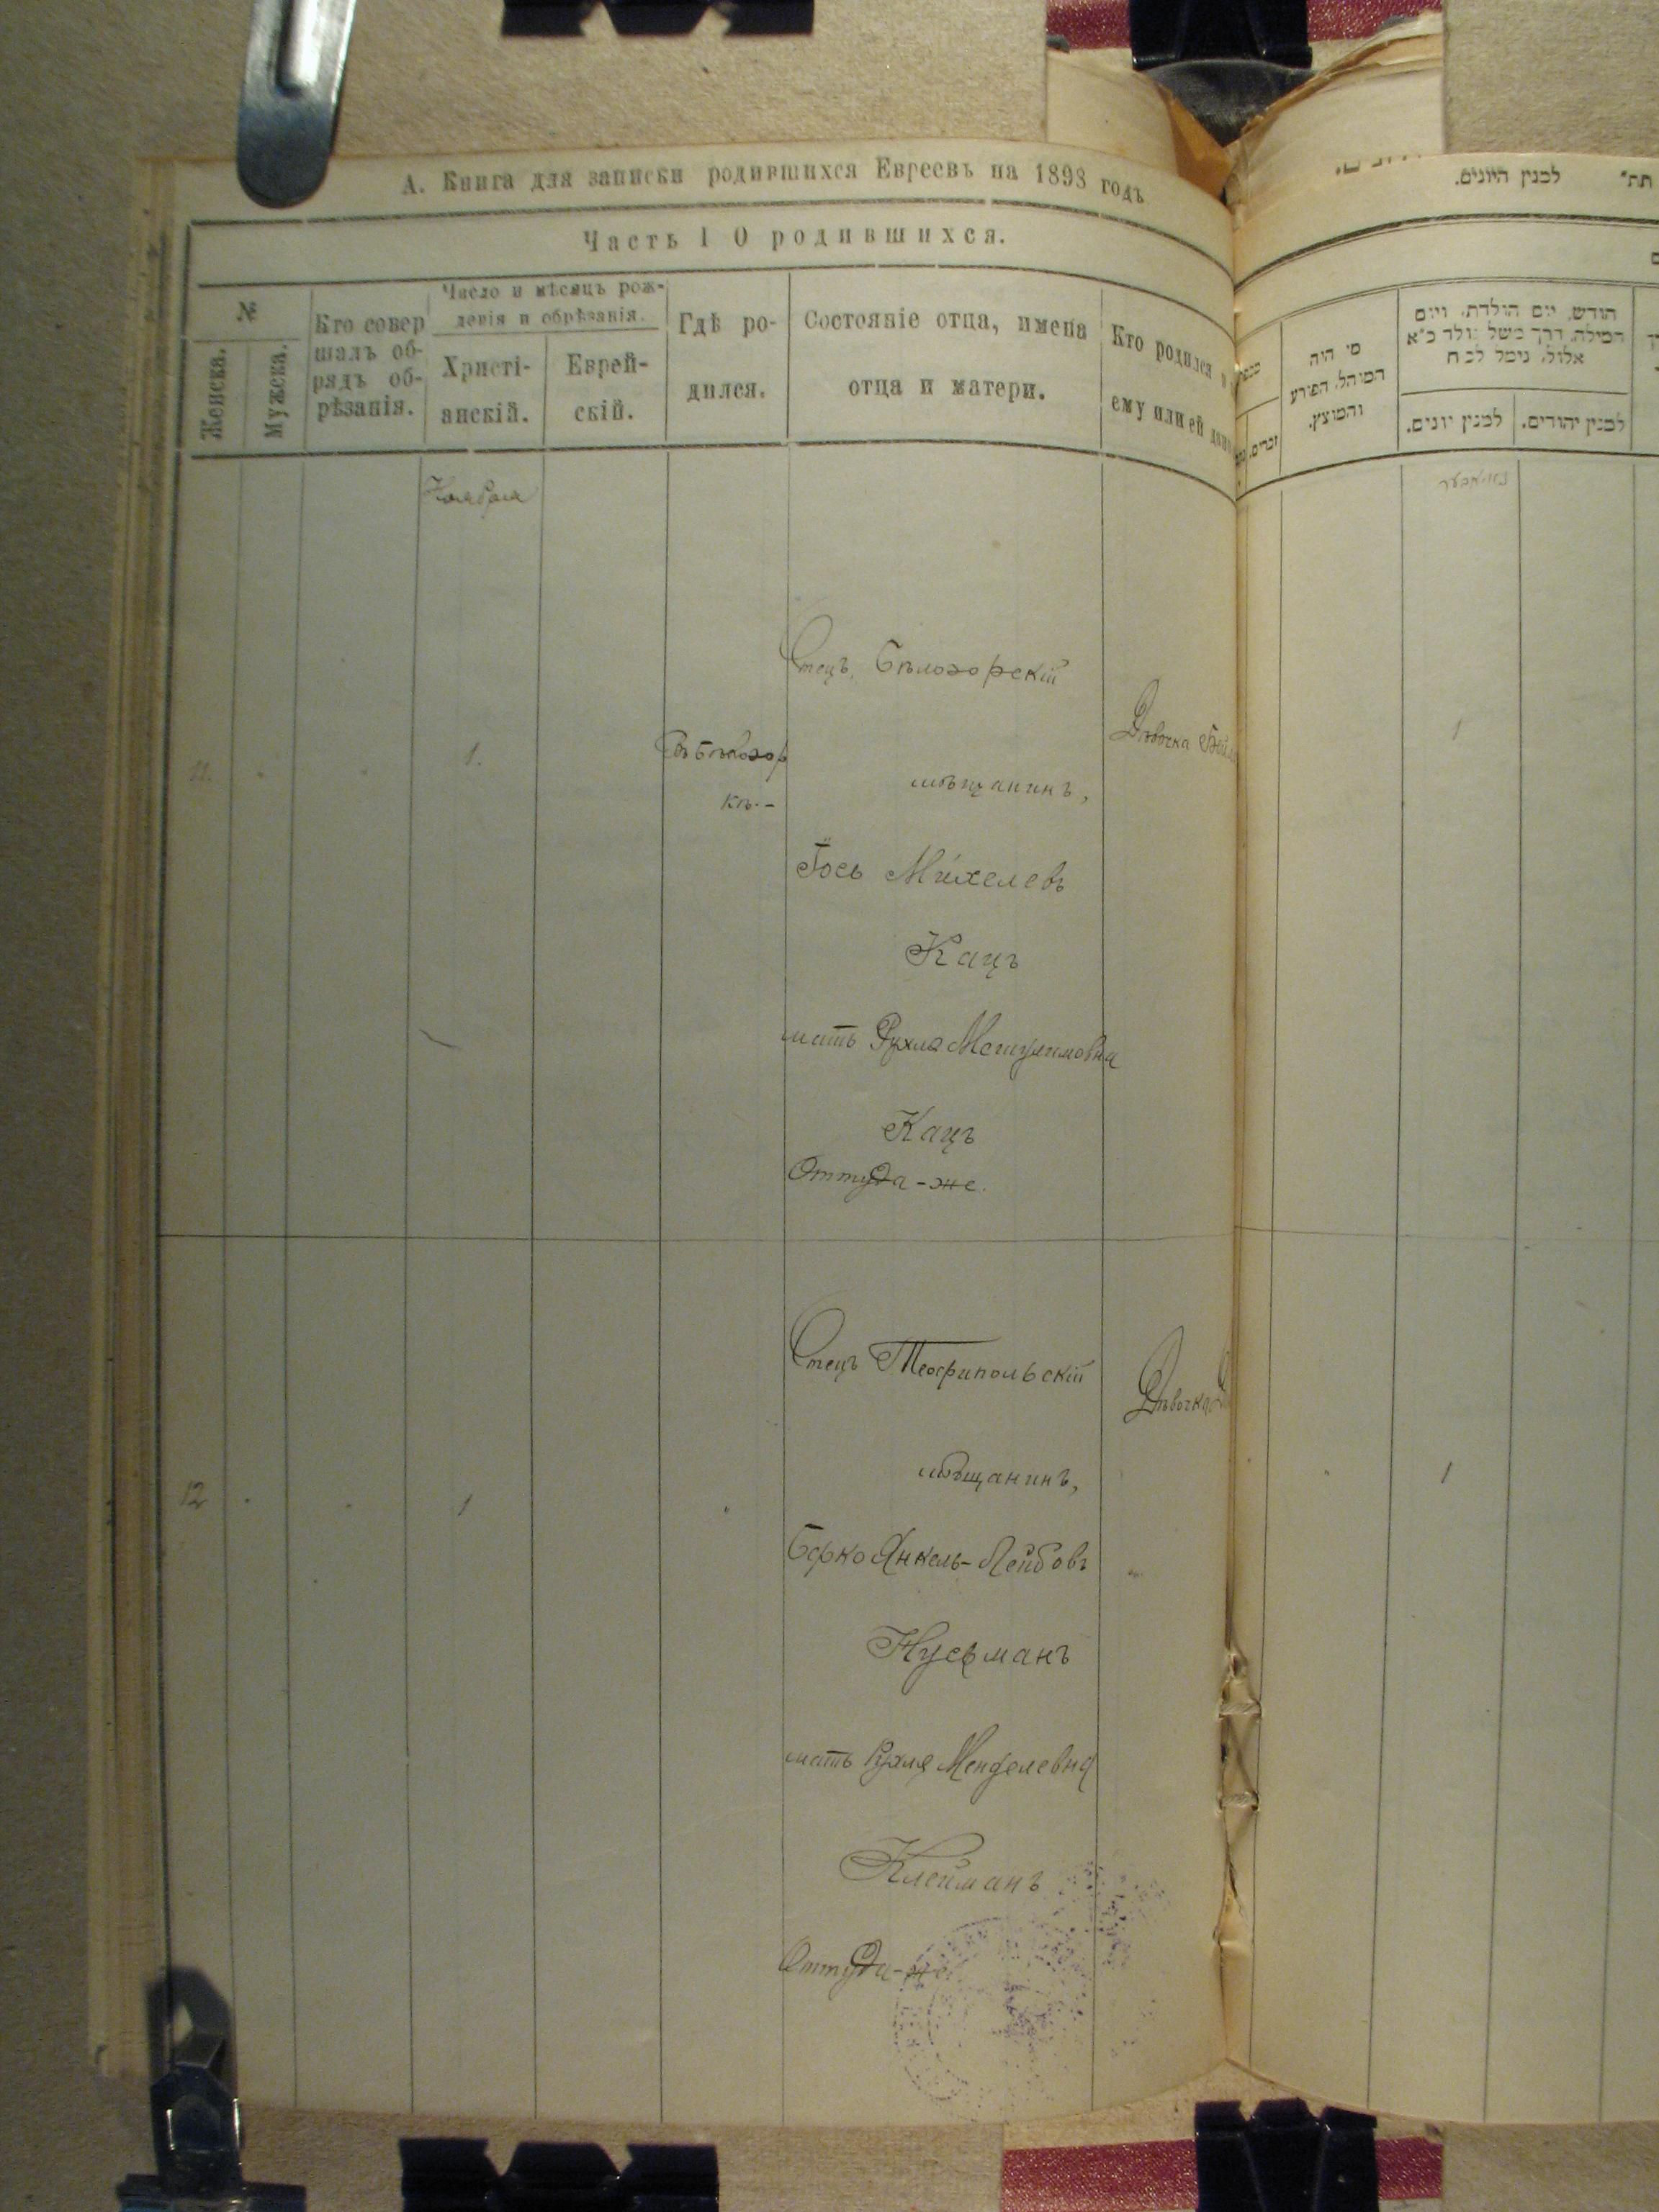 А. Книга для записки родившихся Евреевъ на 1898 годъ
Часть I О родившихся.
№
Женска.
Мужска.
Кто совер
шалъ об-
рядъ об-
рѣзанія.
Число и мѣсяцъ рож-
денія и обрѣзанія.
Христі-
анскій.
Еврей-
скій.
Гдѣ ро-
дился.
Состояніе отца, имена
отца и матери.
Кто родился и
ему или ей
Ноября
11.
1.
Въ Бѣлозор
кѣ.-
Отецъ Бѣлозорскій
мѣщанинъ,
Іось Михелевъ
Кацъ
мать Рухля Мешулимовна
Кацъ
Оттуда-же.
Дѣвочка
12
1
"
Отецъ Теофипольскій
мѣщанинъ,
Берко Янкель-Лейбовъ
Нусьманъ
мать Рухля Менделевна
Клейманъ
Оттуда-же
Дѣвочка
לכנין היונים.
תת״
מי היה
המוהל, הפורע
והמוצץ.
זכרים.
חודש, יום הולדת, ויום
המילה, דרך משל נולד כ״א
אלול, נימל לכ״ח
למנין יונים.
למנין יהודים.
נאיאבער
1
1